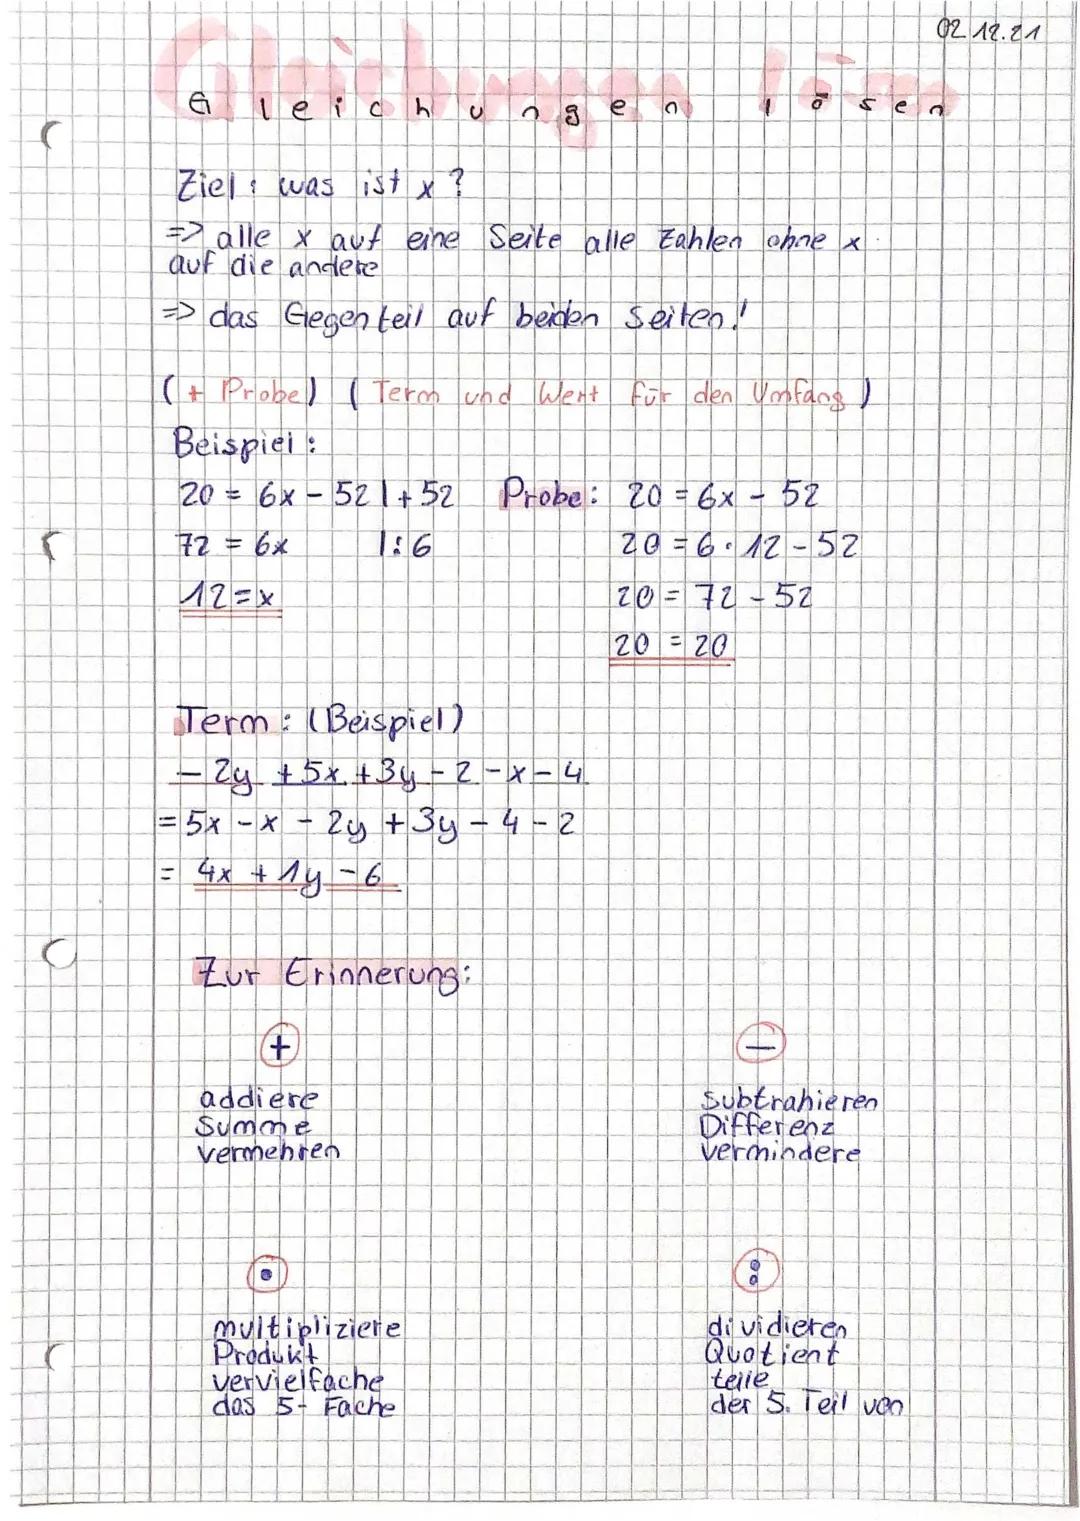 02.12.21
Gleichungen lösen
Gleichungen lösen
Ziel: was ist x?
=> alle x auf eine Seite alle Zahlen ohne x
auf die andere
=> das Gegenteil auf beiden Seiten!
(+ Probe) (Term und Wert für den Umfang)
Beispiel:
20 = 6x - 52 |+52 Probe: 20 = 6x - 52
72 = 6x |:6 20 = 6 · 12 - 52
12 = x 20 = 72 - 52
20 = 20
Term: (Beispiel)
- 2y + 5x + 3y - 2 - x - 4
= 5x - x - 2y + 3y - 4 - 2
= 4x + 1y - 6
Zur Erinnerung:
+ −
addiere subtrahieren
Summe Differenz
vermehren vermindere
• :
multipliziere dividieren
Produkt Quotient
vervielfache teile
das 5-Fache der 5. Teil von